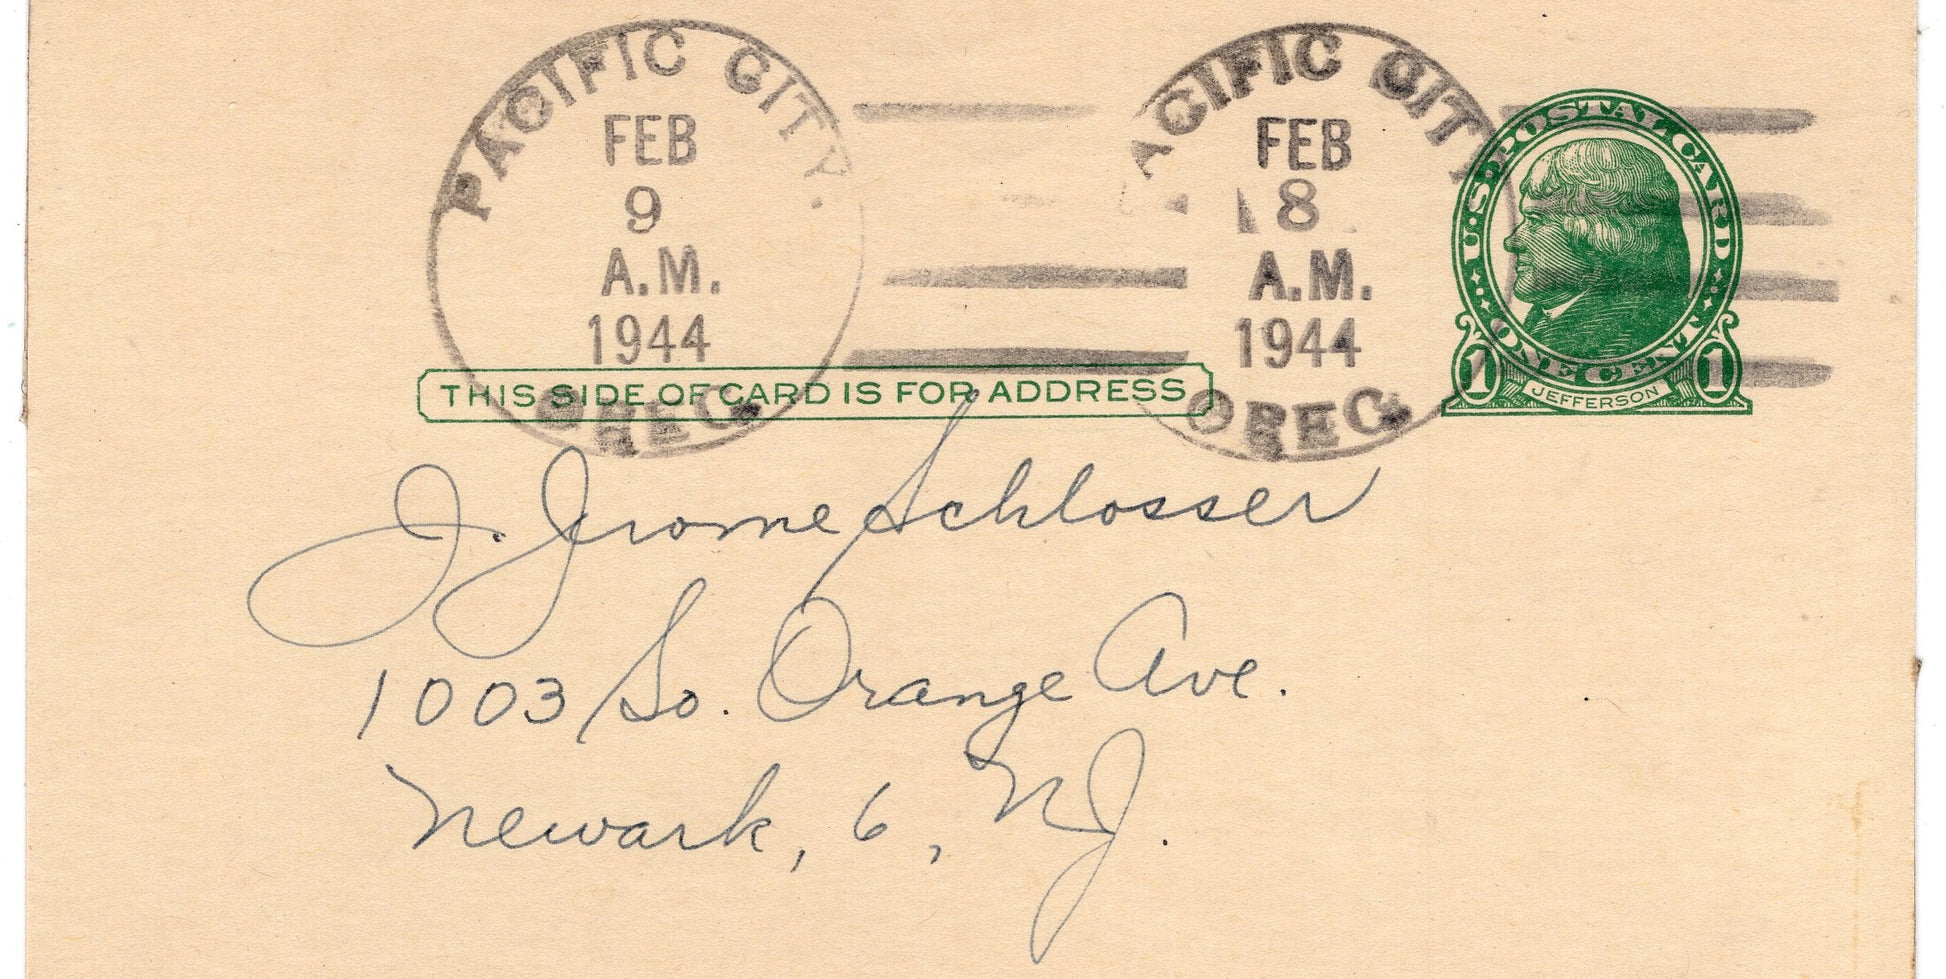 PACIFIC CITY.
FEB
9
A.M.
1944
OREG.
PACIFIC CITY
FEB
8
A.M.
1944
OREG.
U.S. POSTAL CARD
ONE CENT
1 JEFFERSON 1
THIS SIDE OF CARD IS FOR ADDRESS
J. Jerome Schlosser
1003 So. Orange Ave.
Newark, 6, N.J.